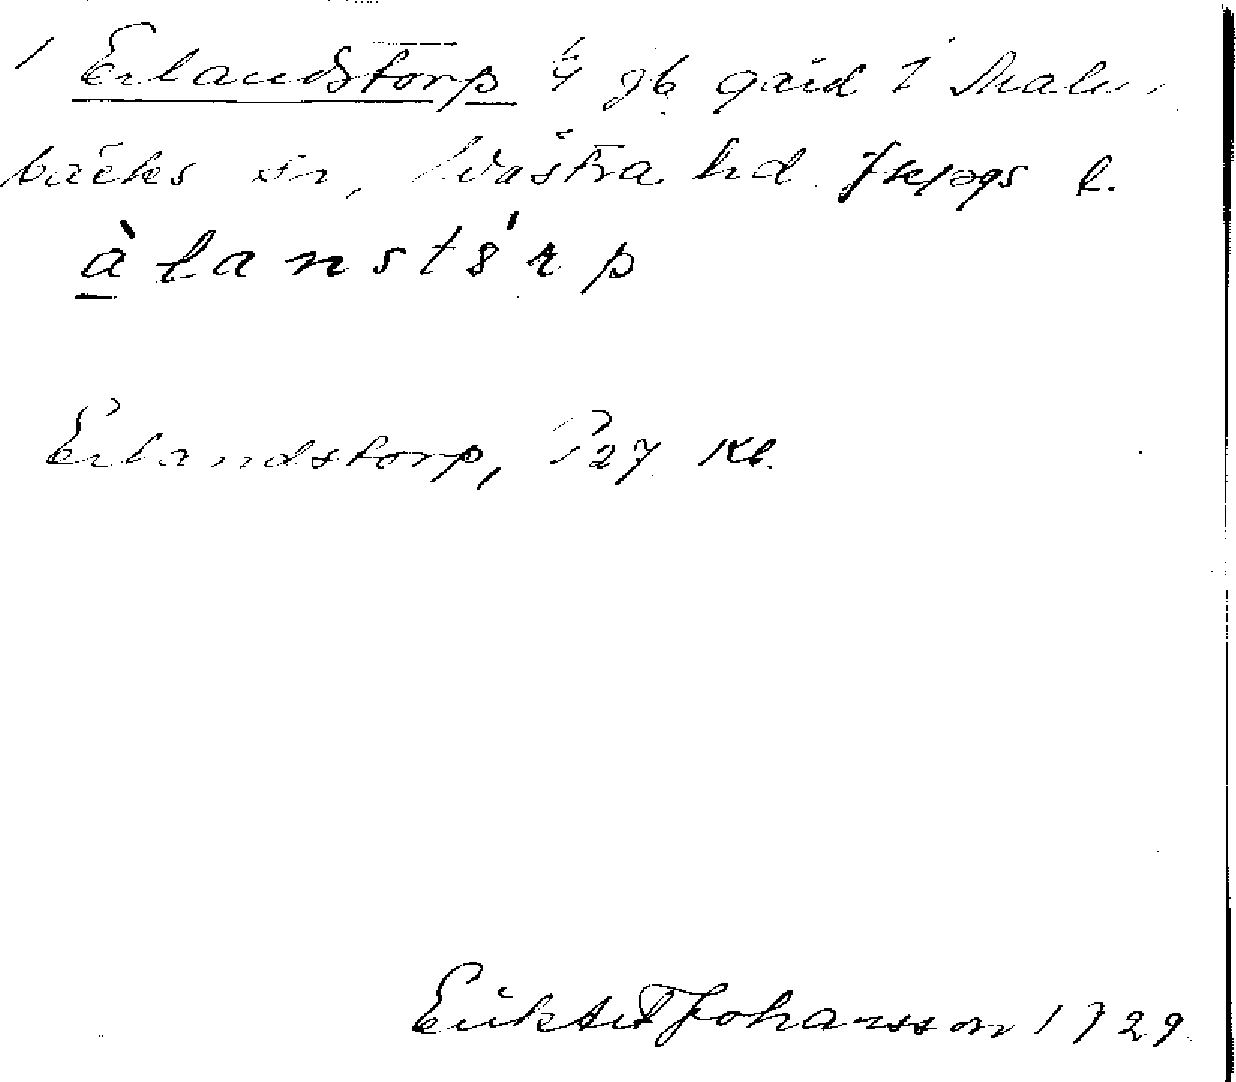 1 Erlandstorp 1/4 gb gård i Malm-
bäcks sn, Västra hd. Jkpgs l.
àlanstórp
Erlandstorp, 127 Kb.
Johansson 1929.